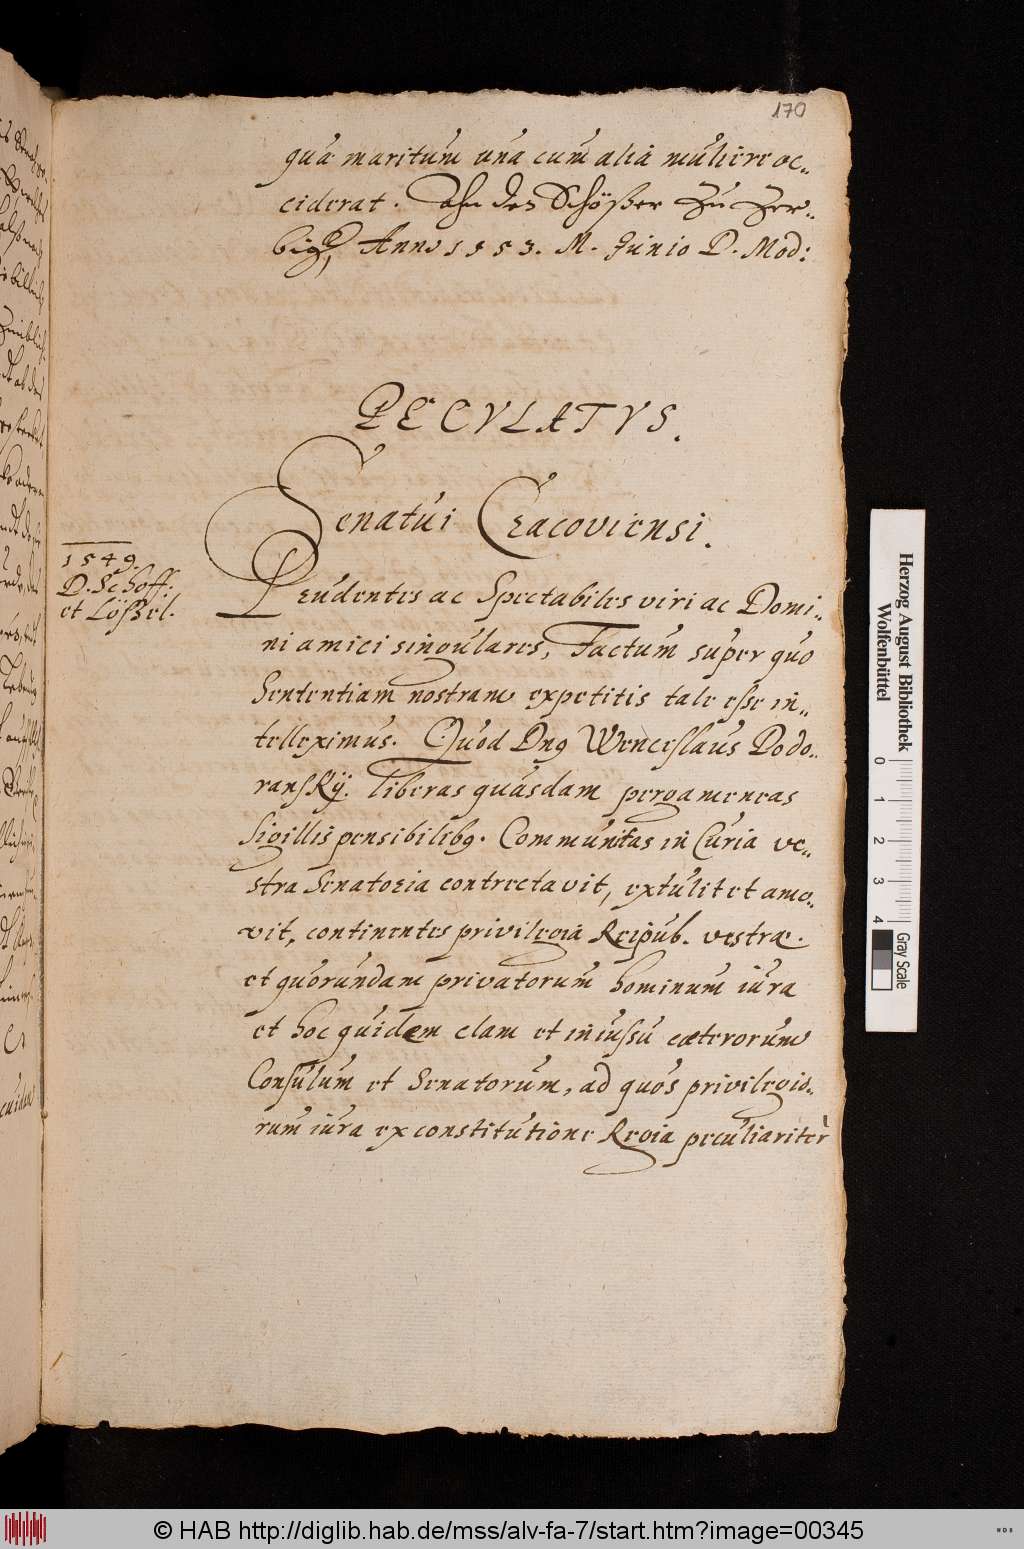 170
quæ maritum una cum alia muliere oc„
ciderat. Ahn den Schößer zu Zer„
big, Anno 1553. M. Junio D. Mod:
PECVLATVS.
Senatui Cracoviensi.
1549.
D. Schoff:
et Lößel.
Prudentes ac Spectabiles viri ac Domi„
ni amici singulares, Factum super quo
Sententiam nostram expetitis tale esse in„
telleximus. Quod Dn9 Wenceslaus Podo„
ransKÿ. literas quasdam pergameneas
Sigillis pensibilib9. Communitas in Curia ve„
stra Senatoria contrectavit, extulit et amo„
vit, continentes privilegia Reipub. vestræ.
et quorundam privatorum hominum iura
et hoc quidem clam et iniussu cæterorum
Consulum et Senatorum, ad quos privilegio„
rum iura ex constitutione Regia peculiariter
Herzog August Bibliothek
Wolfenbüttel
0 1 2 3 4
Gray Scale
© HAB http://diglib.hab.de/mss/alv-fa-7/start.htm?image=00345